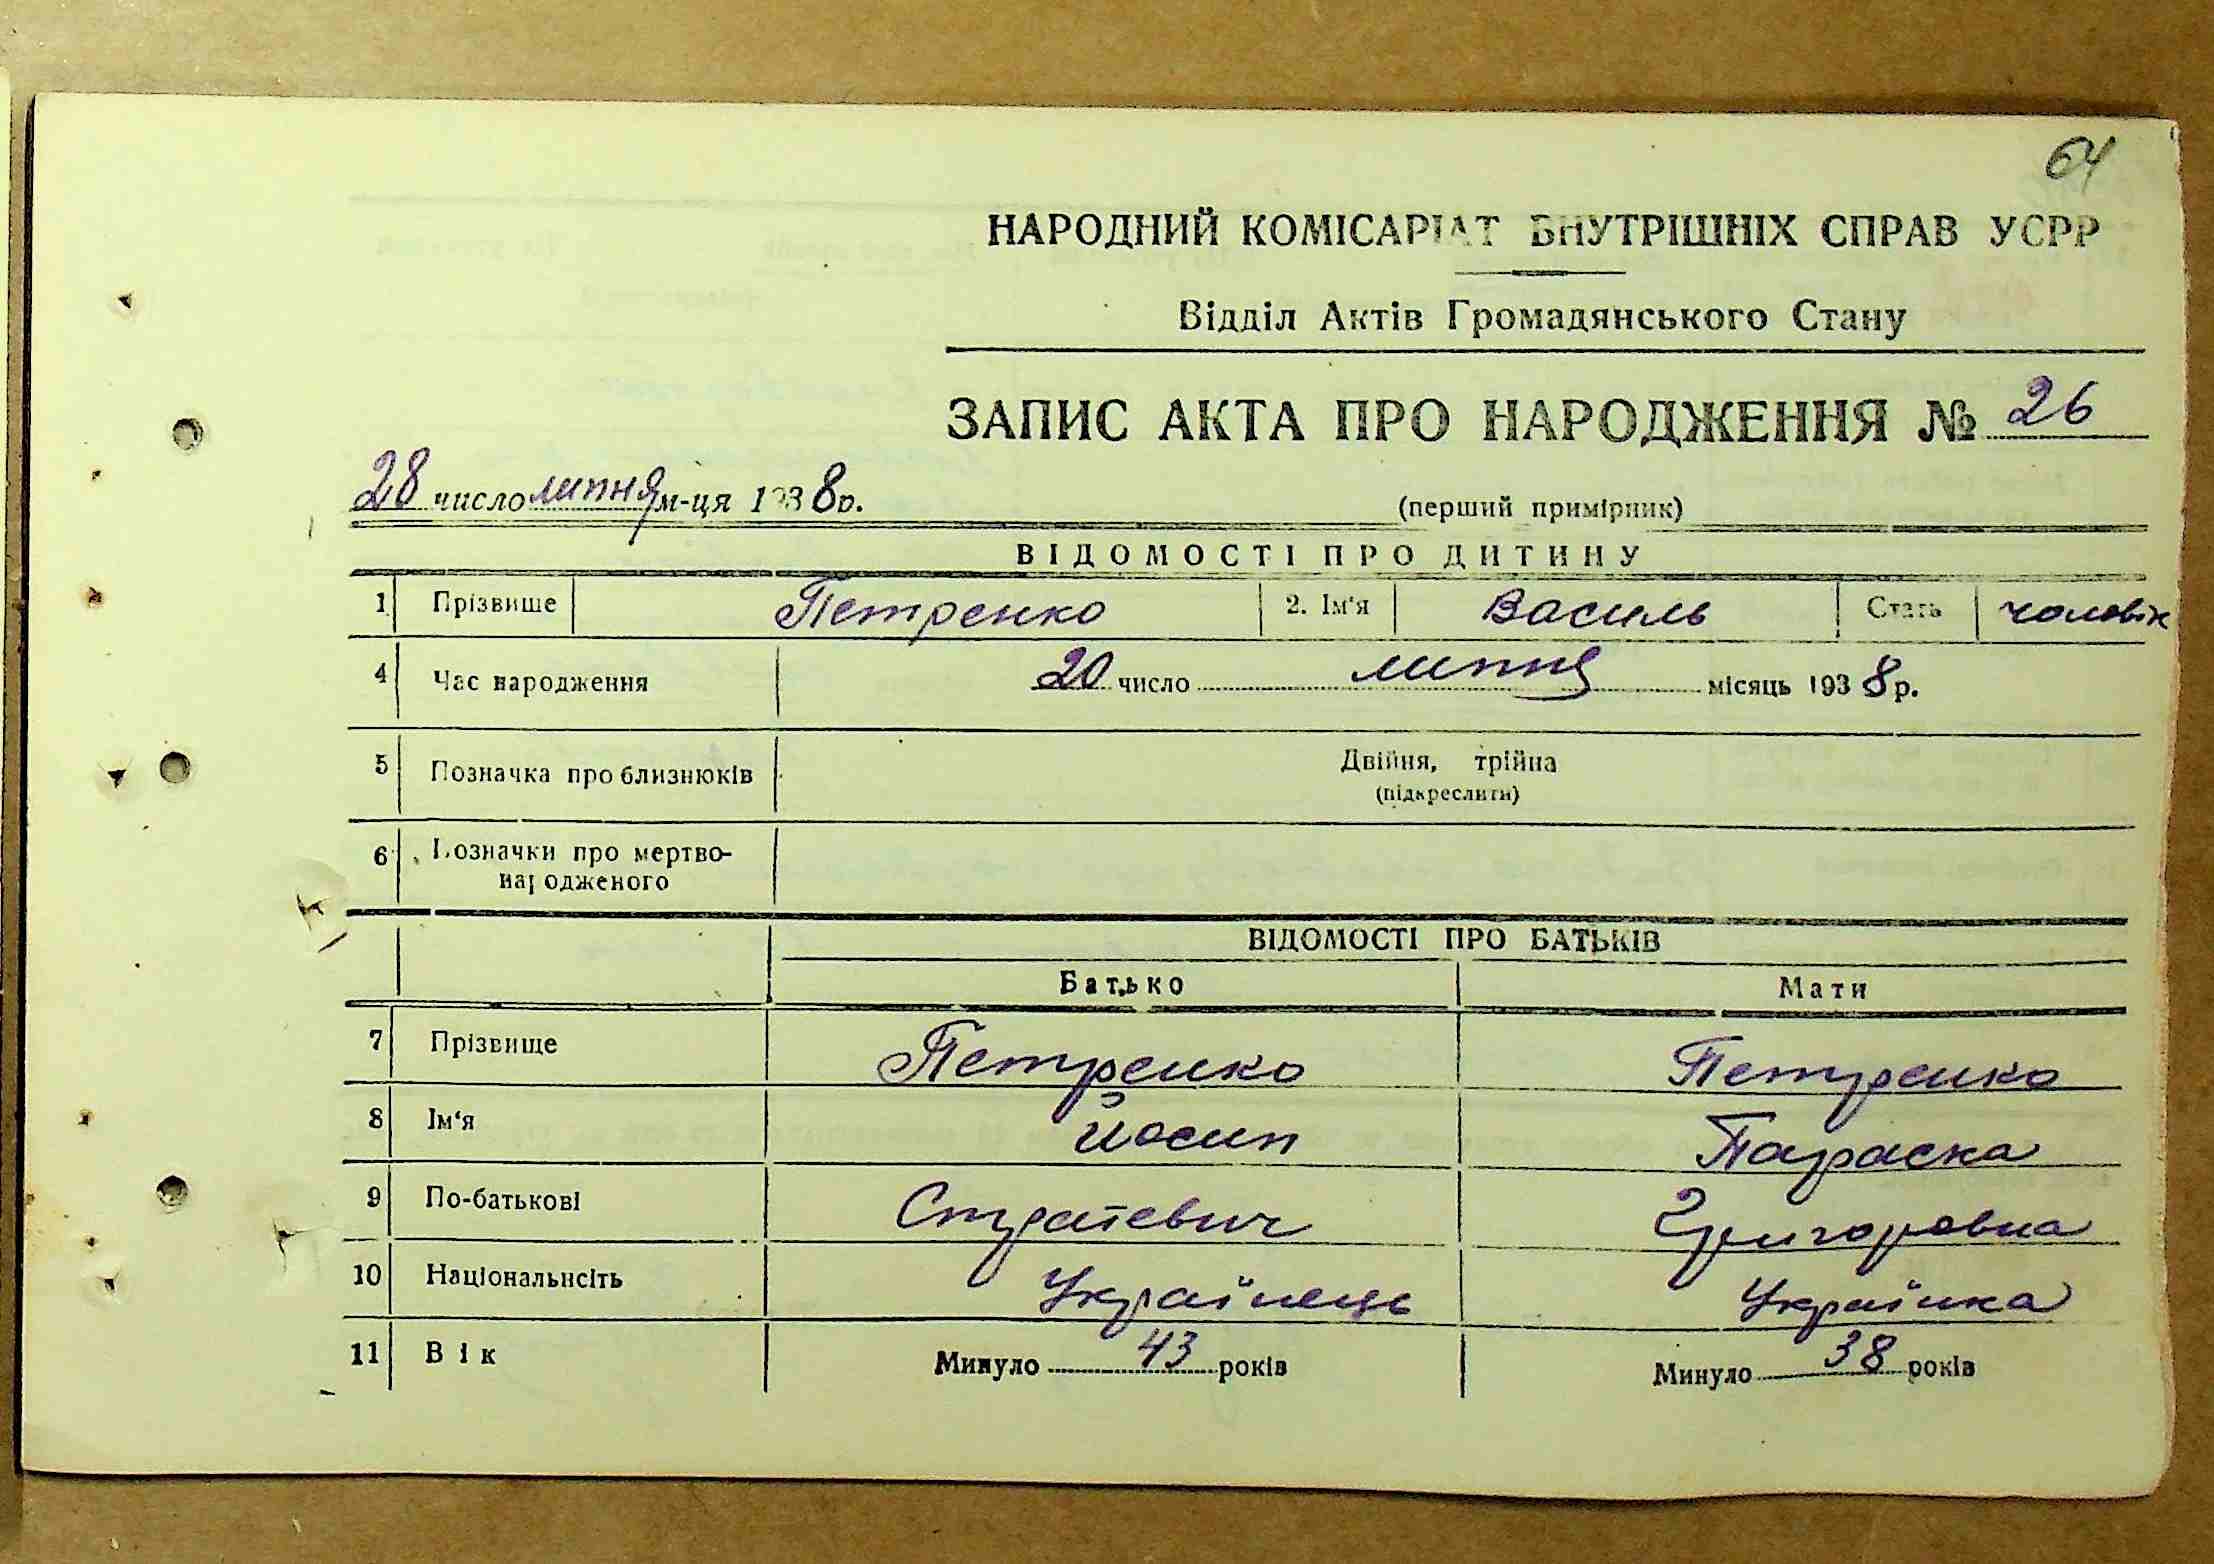 64
НАРОДНИЙ КОМІСАРІАТ ВНУТРІШНІХ СПРАВ УСРР
Відділ Актів Громадянського Стану
ЗАПИС АКТА ПРО НАРОДЖЕННЯ № 26
28 число липня м-ця 1938 р.
(перший примірник)
ВІДОМОСТІ ПРО ДИТИНУ
1 Прізвище Петренко 2. Ім'я Василь Стать чоловік
4 Час народження 20 число липня місяць 1938 р.
5 Позначка про близнюків Двійня, трійна
(підкреслити)
6 Позначки про мертво-
народженого
ВІДОМОСТІ ПРО БАТЬКІВ
Батько Мати
7 Прізвище Петренко Петренко
8 Ім'я Йосип Параска
9 По-батькові Григоровна
10 Національнсіть Українець Українка
11 Вік Минуло 43 років Минуло 38 років